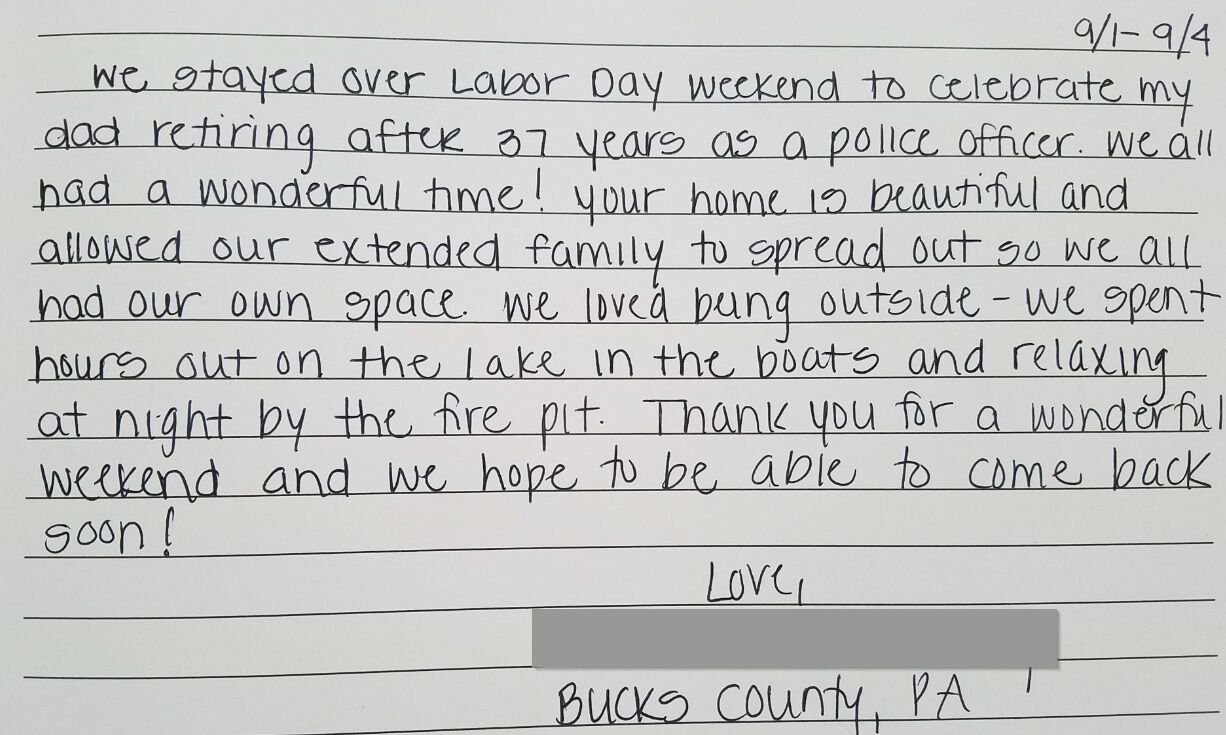 9/1-9/4
We stayed over Labor Day weekend to celebrate my
dad retiring after 37 years as a police officer. We all
had a wonderful time! Your home is beautiful and
allowed our extended family to spread out so we all
had our own space. We loved being outside - we spent
hours out on the lake in the boats and relaxing
at night by the fire pit. Thank you for a wonderful
weekend and we hope to be able to come back
soon!
Love,
Bucks County, PA